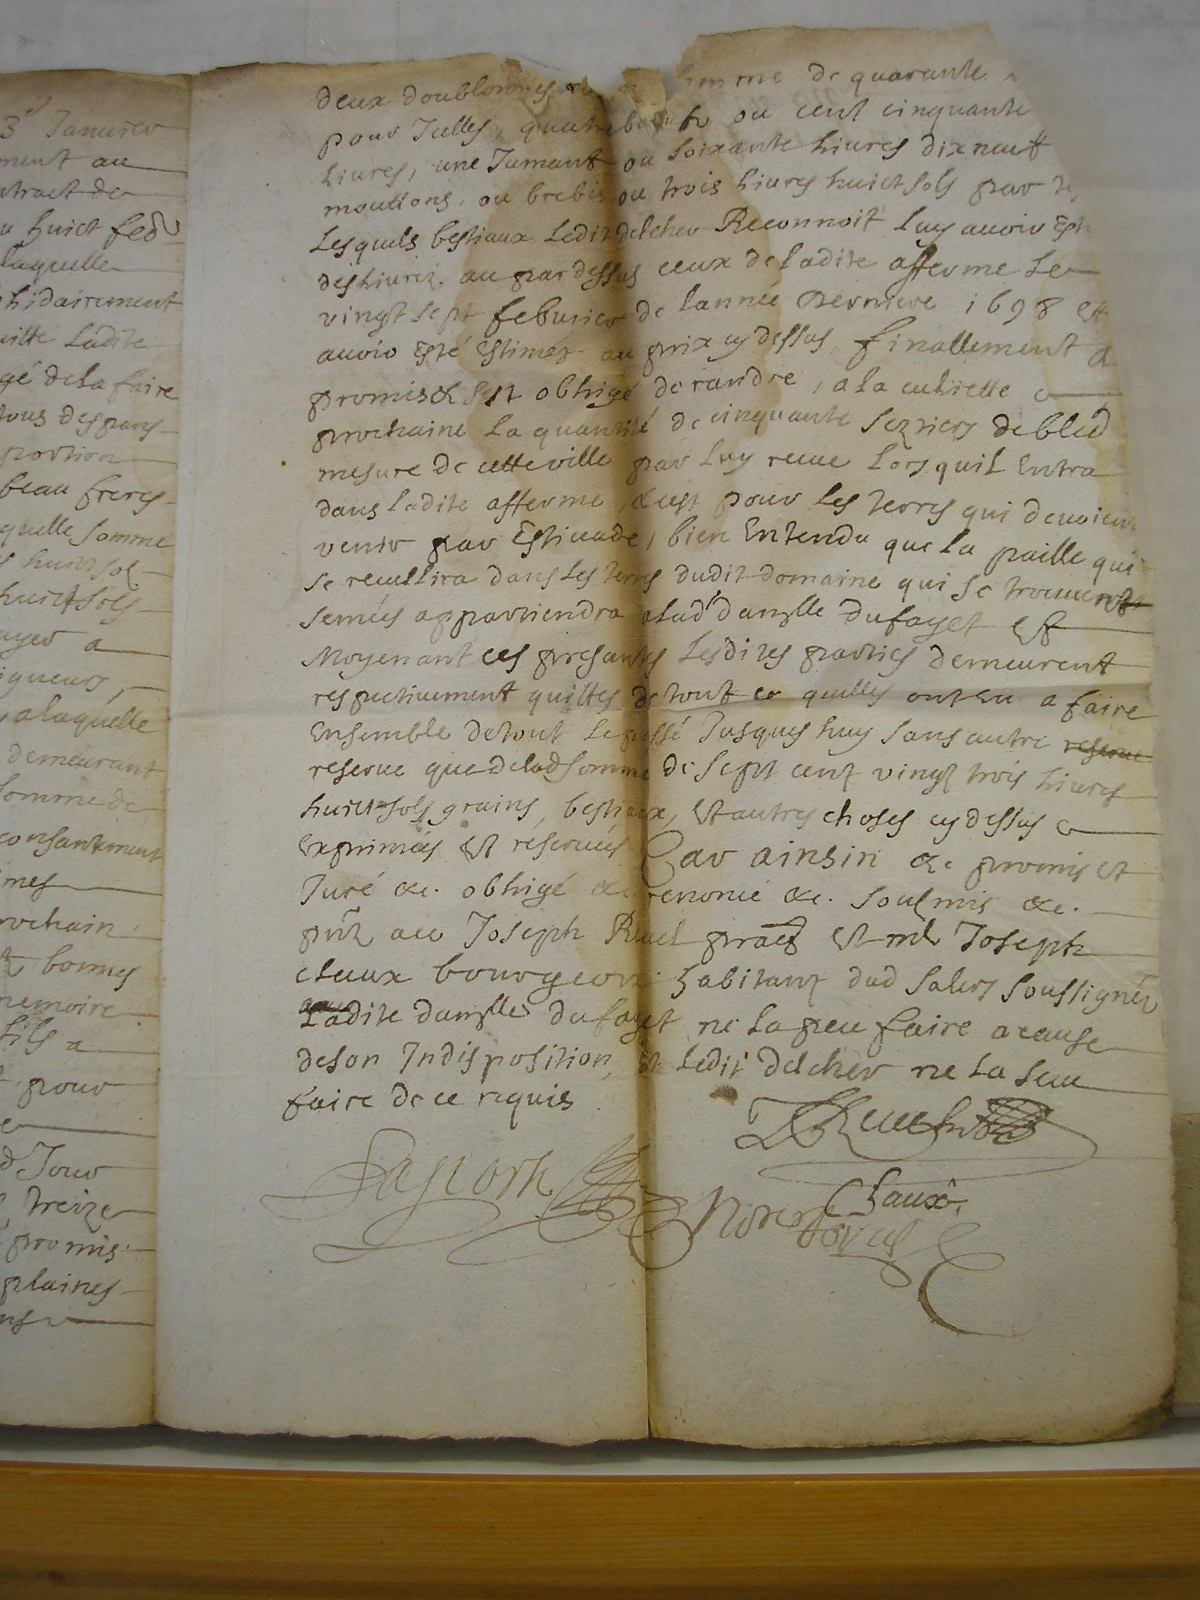 3e Januier
ment au
ntract de
u huict feb
laquelle
hidairement
uitte Ladite
gé de la faire
tous despans
portion
beau freres
quelle somme
huict sol
huict sols
ayer a
igueurs,
, a laquelle
demeurant
somme de
consantement
mes
rochain
bonnes
memoire
fils a
pour
d Jour
treize
promis
plaines
deux doublonnes somme de quarante
pour Icelles, quatre boeufs ou cent cinquante
liures, une Jumant ou soixante liures dix neuf
moutons, ou brebis ou trois liures huict sols par
Lesquels bestiaux Ledit delcher Reconnoit Luy auoir Est
desliurez au par dessus ceux de ladite afferme Le
vingt sept feburier de lannée derniere 1698 Et
auoir Esté Estimés au prix cy dessus, finallement a
promis & sest obligé de randre, a la culiette
prochaine La quantité de cinquante sezriers de bled
mesure de cette ville par Luy receue Lors quil Entra
dans ladite afferme, & cest pour Les terres qui devoient
venir par Estiuade, bien Entendu que la paille qui
se recullira dans Les terres dudit domaine qui se trouueront
semées appartiendra a lad. damlle dufayet Et
Moyenant ces presantes Lesdites parties demeurent
respectiuement quittes de tout ce quelles ont eu a faire
Ensemble de tout Le passé Jusques huy sans autre reserue
reserue que de lad somme de sept cent vingt trois liures
huict sols grains, bestiaux, Et autres choses cy dessus
Exprimées Et reseruées Car ainsin &c promis et
Juré &c. obligé &c. renoncé &c. soubmis &c.
pnt ace Joseph Revel Et Joseph
Chaux bourgeois habitant dud Salers soussignés
Ladite damlle du fayet ne la peu faire a cause
de son Indisposition, Et Ledit delcher ne La sceu
faire de ce requis
Chaux